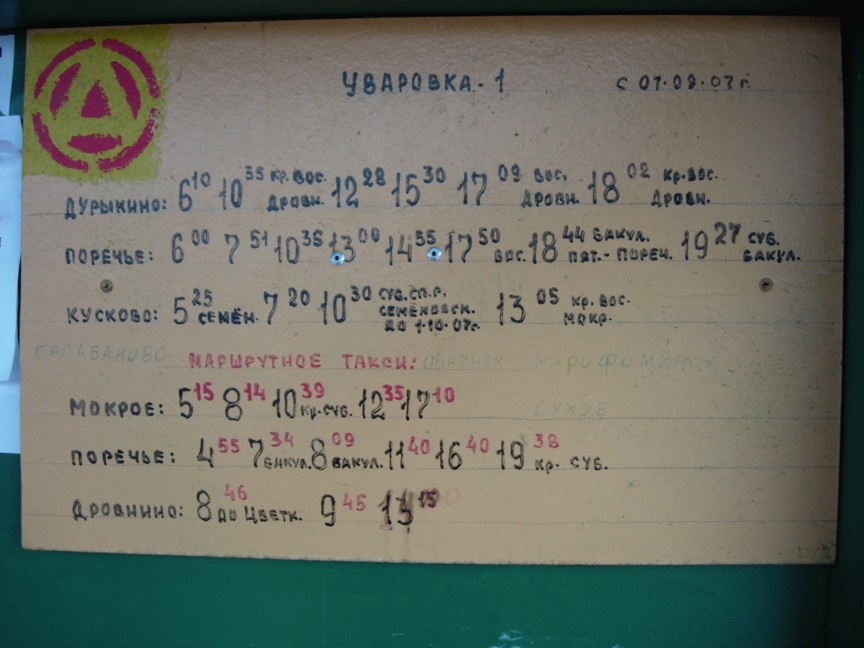 УВАРОВКА-1 с 01.09.07г.
ДУРЫКИНО: 6 10 10 35 КР.ВОС. ДРОВН. 12 28 15 30 17 09 ВОС. ДРОВН. 18 02 КР.ВОС. ДРОВН.
ПОРЕЧЬЕ: 6 00 7 51 10 38 13 00 14 55 17 50 ВОС. 18 44 БАКУЛ. ПЯТ.-ПОРЕЧ. 19 27 СУБ. БАКУЛ.
КУСКОВО: 5 25 СЕМЁН. 7 20 10 30 СУБ.СП.Р. СЕМЁНОВСК. ДО 1.10.07г. 13 05 КР.ВОС. МОКР.
БАЛАБАНОВО МАРШРУТНОЕ ТАКСИ: ОБНИНСК НАРОФОМИНСК
МОКРОЕ: 5 15 8 14 10 39 КР.СУБ. 12 35 17 10 СУХОЕ
ПОРЕЧЬЕ: 4 55 7 34 БАКУЛ. 8 09 БАКУЛ. 11 40 16 40 19 38 КР. СУБ.
ДРОВНИНО: 8 46 ДО ЦВЕТК. 9 45 13 15